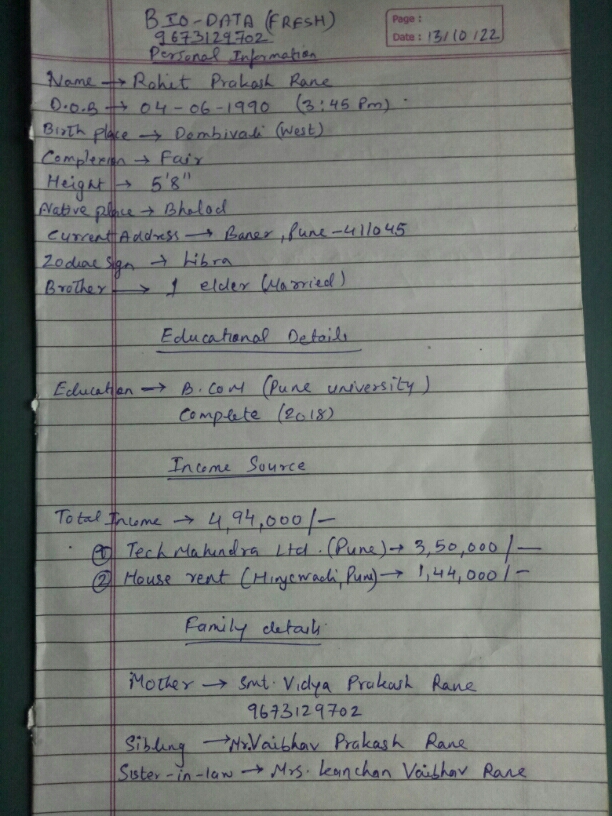 BIO-DATA (FRESH)
9673129702
Page :
Date : 13/10/22
Personal Information
Name → Rohit Prakash Rane
D.O.B → 04-06-1990 (3:45 Pm)
Birth place → Dombivali (West)
Complexion → Fair
Height → 5'8"
Native place → Bhalod
Current Address → Baner, Pune-411045
Zodiac Sign → Libra
Brother → 1 elder (Married)
Educational Details
Education → B.COM (Pune university)
Complete (2018)
Income Source
Total Income → 4,94,000/-
① Tech Mahindra Ltd. (Pune) → 3,50,000/-
② House rent (Hinjewadi, Pune) → 1,44,000/-
Family details
Mother → Smt. Vidya Prakash Rane
9673129702
Sibling → Mr. Vaibhav Prakash Rane
Sister-in-law → Mrs. Kanchan Vaibhav Rane